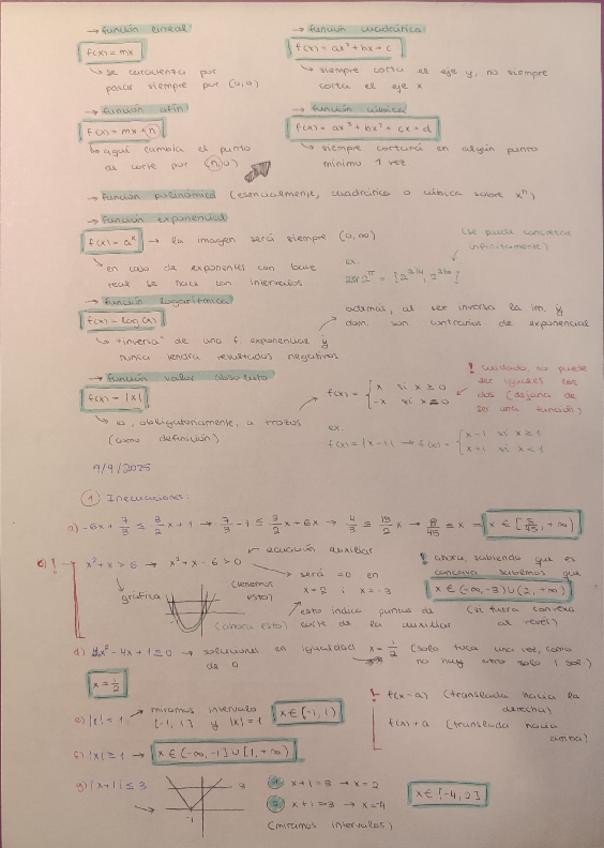 → función lineal
f(x) = mx
↳ se caracteriza por
pasar siempre por (0,0)
→ función cuadrática
f(x) = ax² + bx + c
↳ siempre corta el eje y, no siempre
corta el eje x
→ función afín
f(x) = mx + n
↳ aquí cambia el punto
al corte por (n,0)
→ función cúbica
f(x) = ax³ + bx² + cx + d
↳ siempre cortará en algún punto
mínimo 1 vez
→ función polinómica (esencialmente, cuadrática o cúbica sobre xⁿ)
→ función exponencial
f(x) = aˣ → la imagen será siempre (0, ∞)
↳ en caso de exponentes con base
real se hace con intervalos
(se puede concretar
infinitamente)
ex.
→ función logarítmica
f(x) = log(x)
↳ "inversa" de una f. exponencial y
nunca tendrá resultados negativos
además, al ser inversa la im. y
dom. son contrarios de exponencial
→ función valor absoluto
f(x) = |x|
↳ va, obligatoriamente, a trozos
(como definición)
f(x) = { x si x ≥ 0
-x si x ≤ 0
! cuidado, no puede
ser iguales los
dos (dejaría de
ser una función)
ex.
f(x) = |x-1| → f(x) = { x-1 si x ≥ 1
x+1 si x < 1
9/9/2025
1 Inecuaciones:
a) -6x + 7/3 ≤ 3/2 x + 1 → 7/3 - 1 ≤ 3/2 x + 6x → 4/3 ≤ 15/2 x → 8/45 ≤ x → x ∈ [8/45, +∞)
c) ! x² + x > 6 → x² + x - 6 > 0
ecuación auxiliar
gráfica
(tenemos
esto)
(ahora esto)
→ será = 0 en
x = 2 i x = -3
esto indica puntos de
corte de la auxiliar
! ahora, sabiendo que es
concava sabemos que
x ∈ (-∞, -3) ∪ (2, +∞)
(si fuera convexa
al revés)
d) 4x² - 4x + 1 ≤ 0 → soluciones en igualdad x = 1/2 (solo toca una vez, como
de 0
no hay otro solo 1 sol.)
x = 1/2
e) |x| < 1 → miramos intervalo
[-1, 1] y |x| = 1
x ∈ (-1, 1)
! f(x-a) (translada hacia la
derecha)
f(x)+a (translada hacia
arriba)
f) |x| ≥ 1 → x ∈ (-∞, -1] ∪ [1, +∞)
g) |x+1| ≤ 3
3
-1
1 x+1 = 3 → x = 2
2 x+1 = -3 → x = -4
(miramos intervalos)
x ∈ [-4, 2]